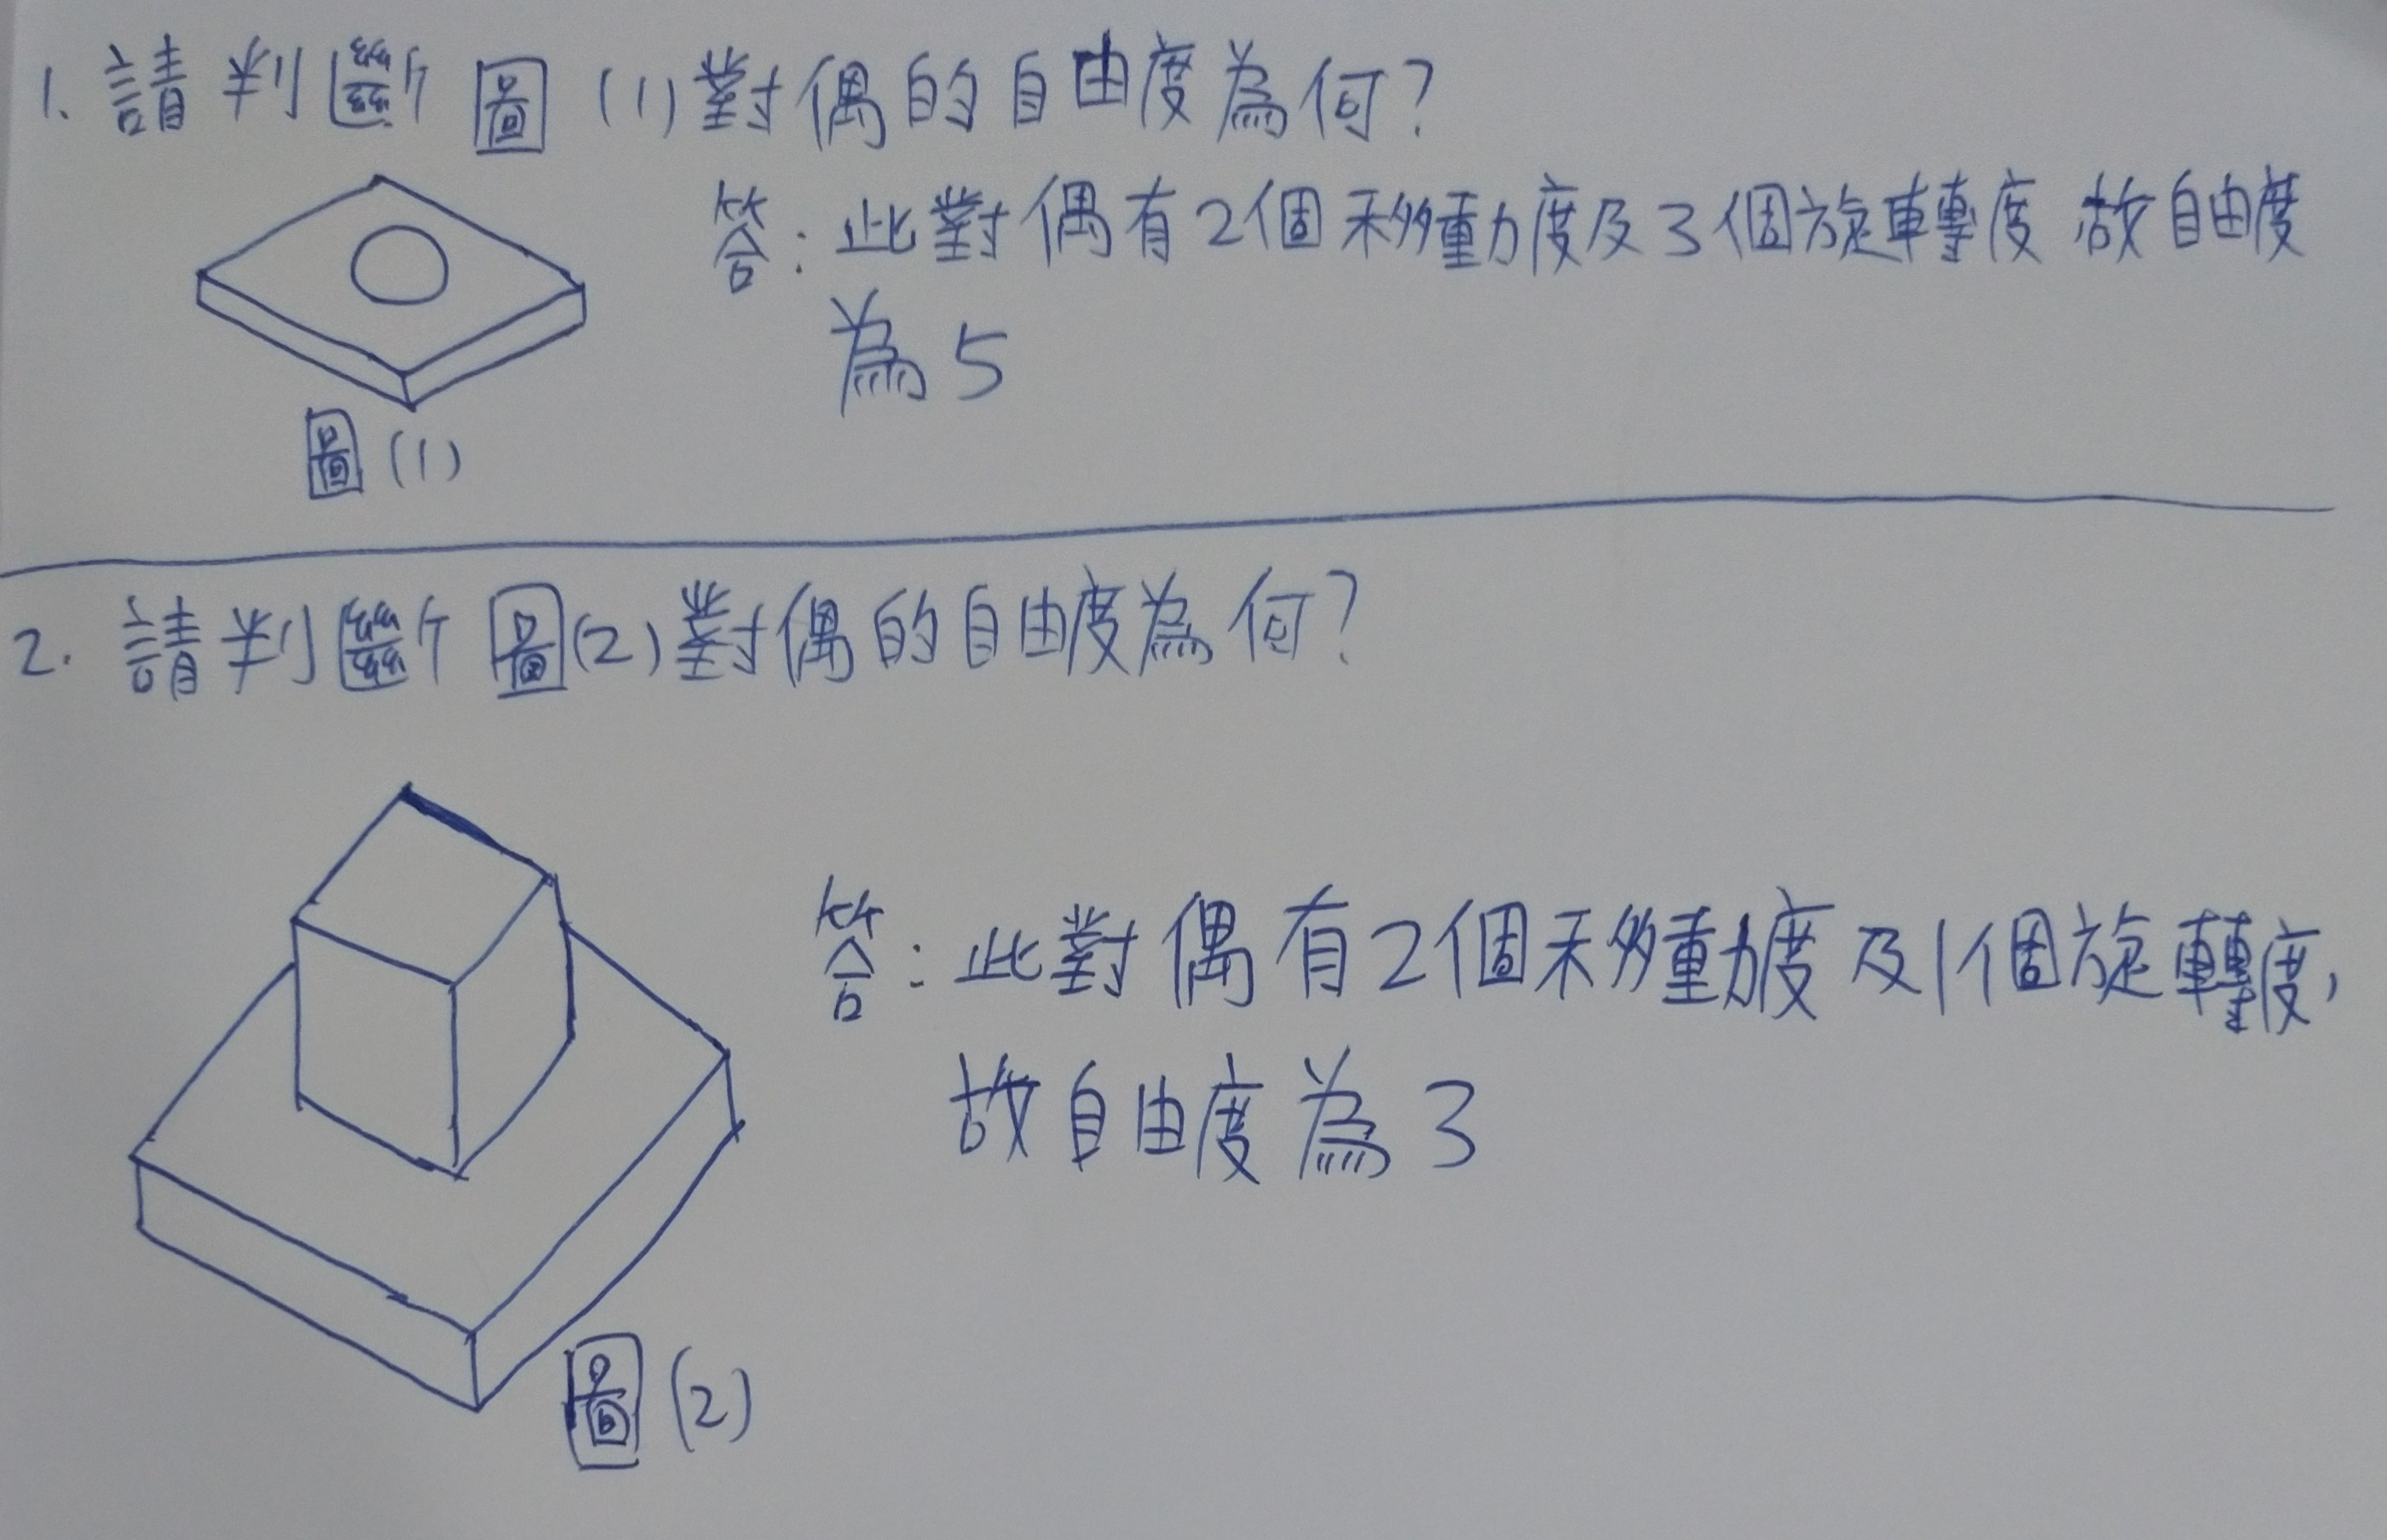 1. 請判斷圖(1)對偶的自由度為何?
答:此對偶有2個移動度及3個旋轉度 故自由度
為5
圖(1)
2. 請判斷圖(2)對偶的自由度為何?
答:此對偶有2個移動度及1個旋轉度,
故自由度為3
圖(2)